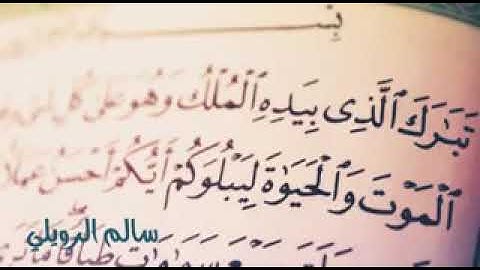 تَبَٰرَكَ ٱلَّذِى بِيَدِهِ ٱلْمُلْكُ وَهُوَ عَلَىٰ كُلِّ
ٱلْمَوْتَ وَٱلْحَيَوٰةَ لِيَبْلُوَكُمْ أَيُّكُمْ أَحْسَنُ عَمَلًا
سَمَٰوَٰتٍ طِبَاقًا
سالم الرويلي